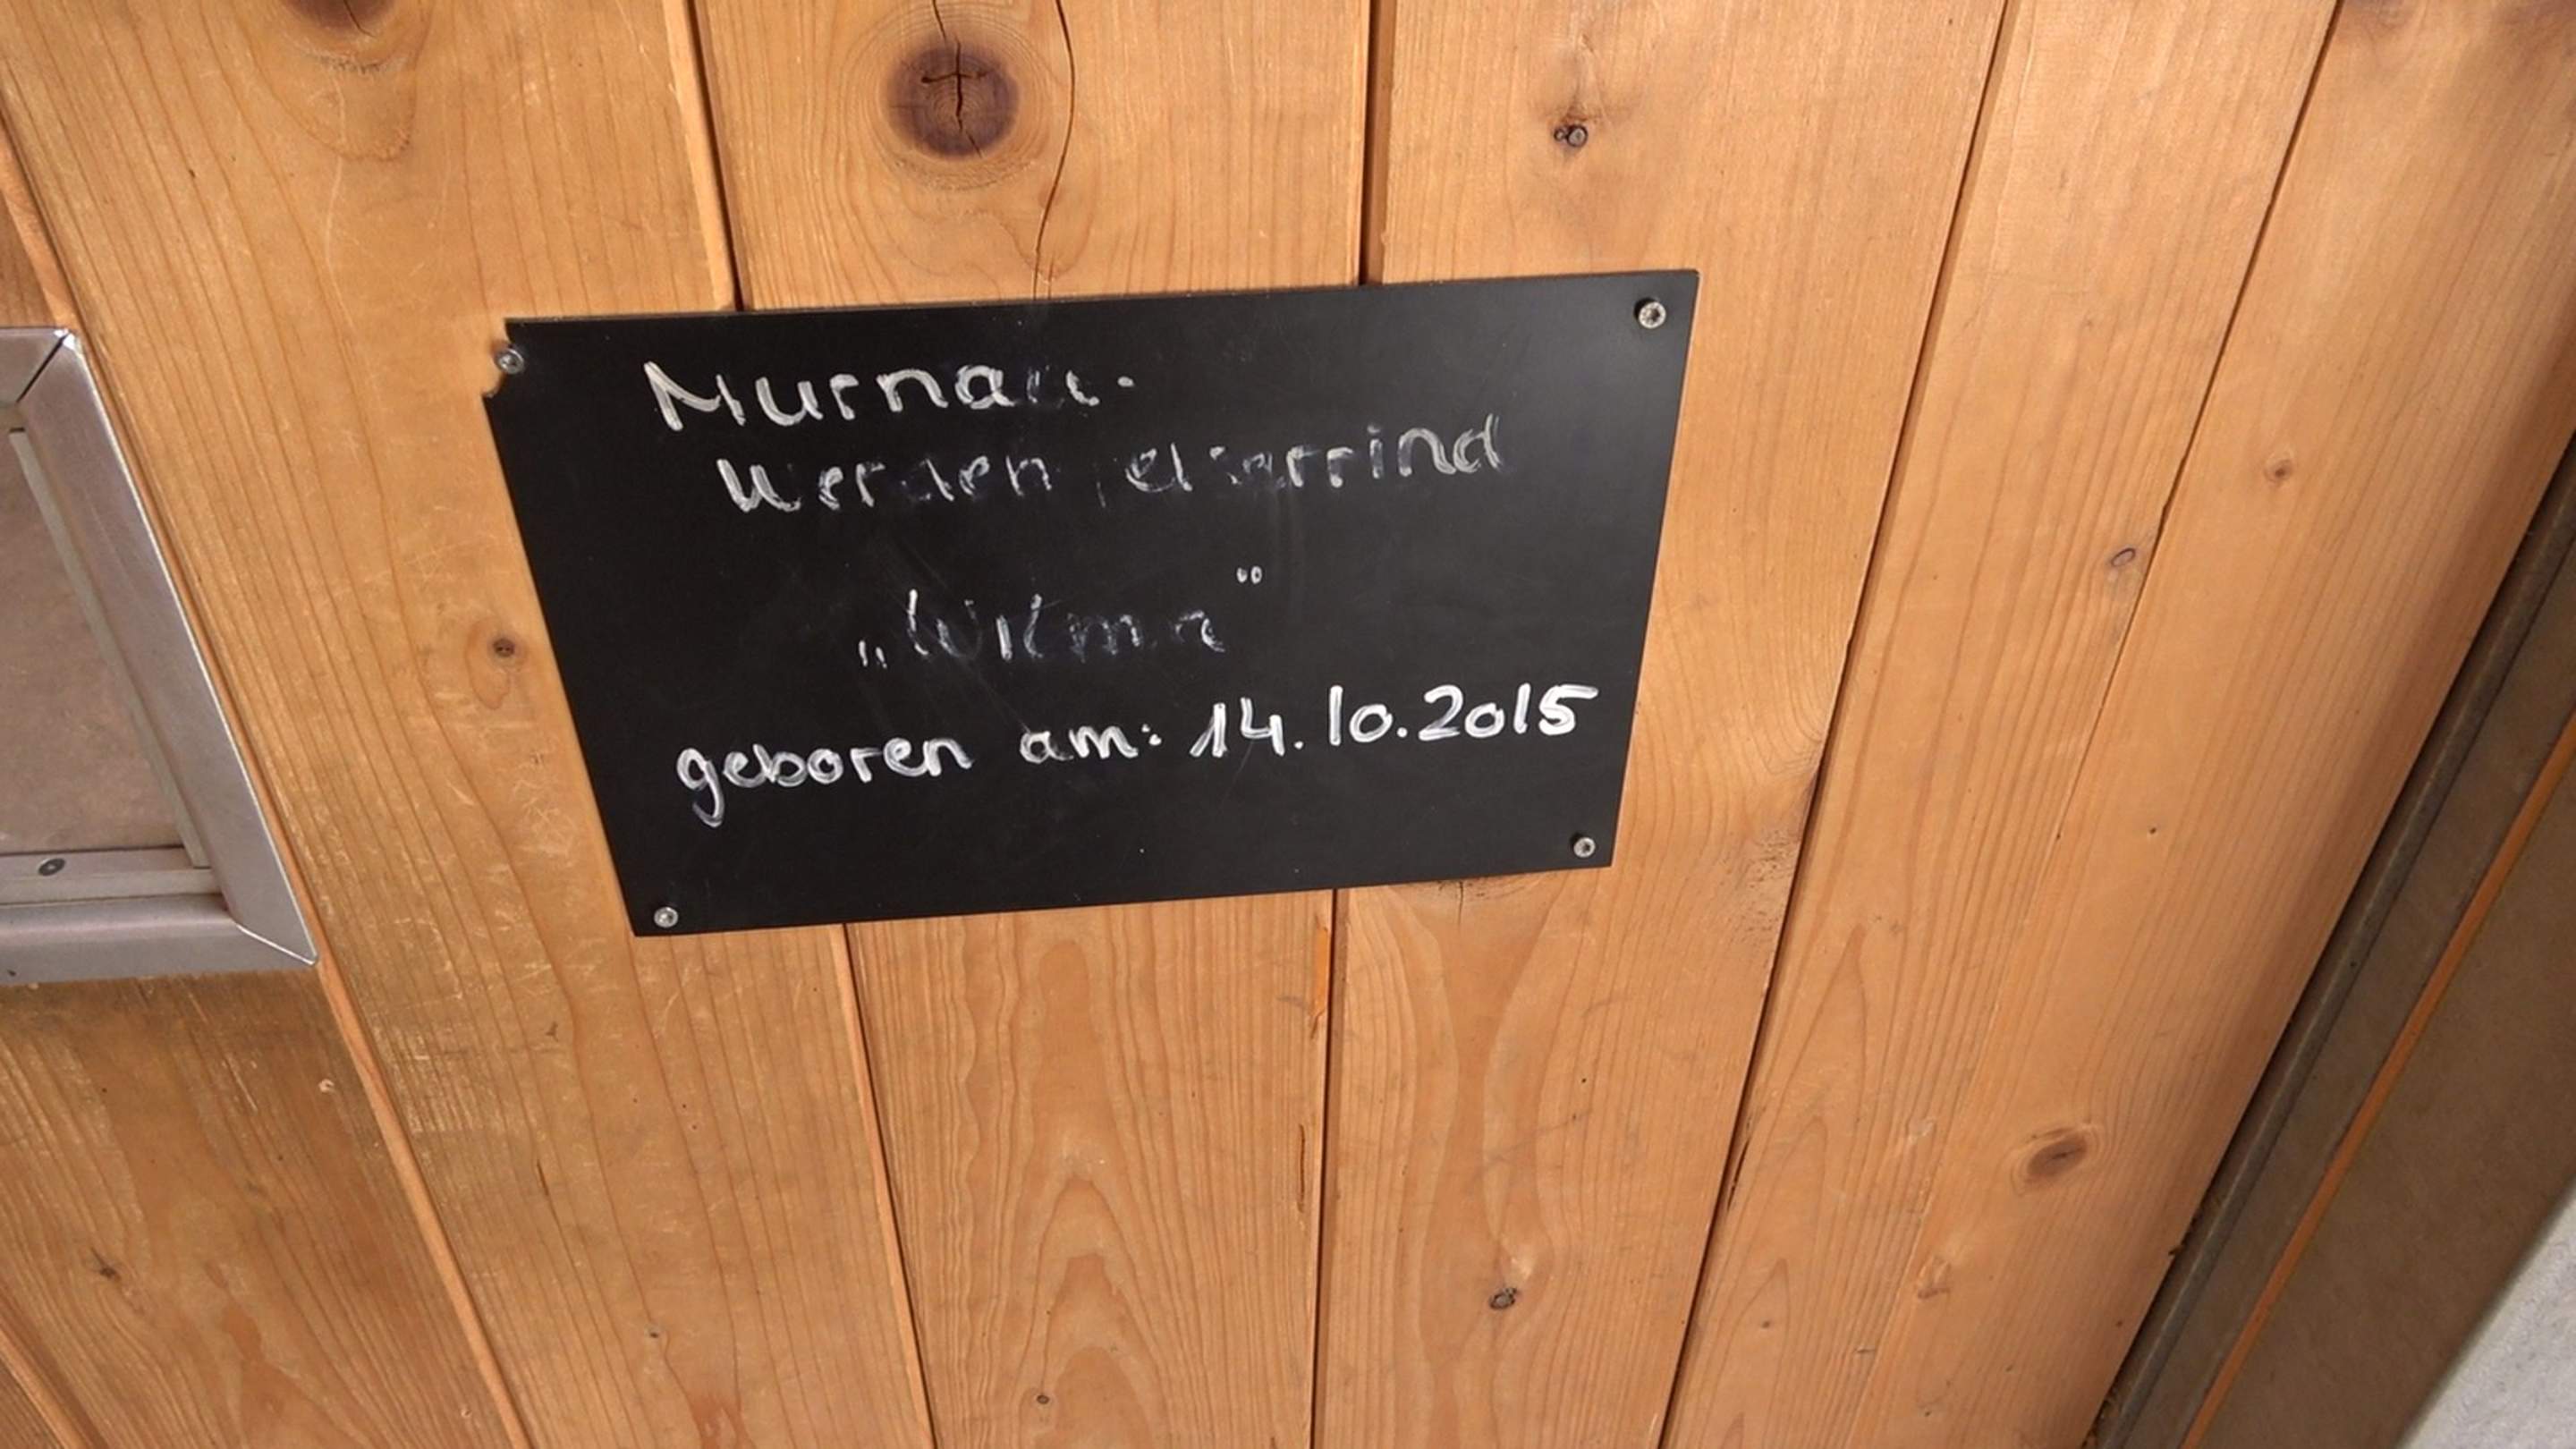 Murnau-
Werdenfelserrind
„Wilma“
geboren am: 14.10.2015